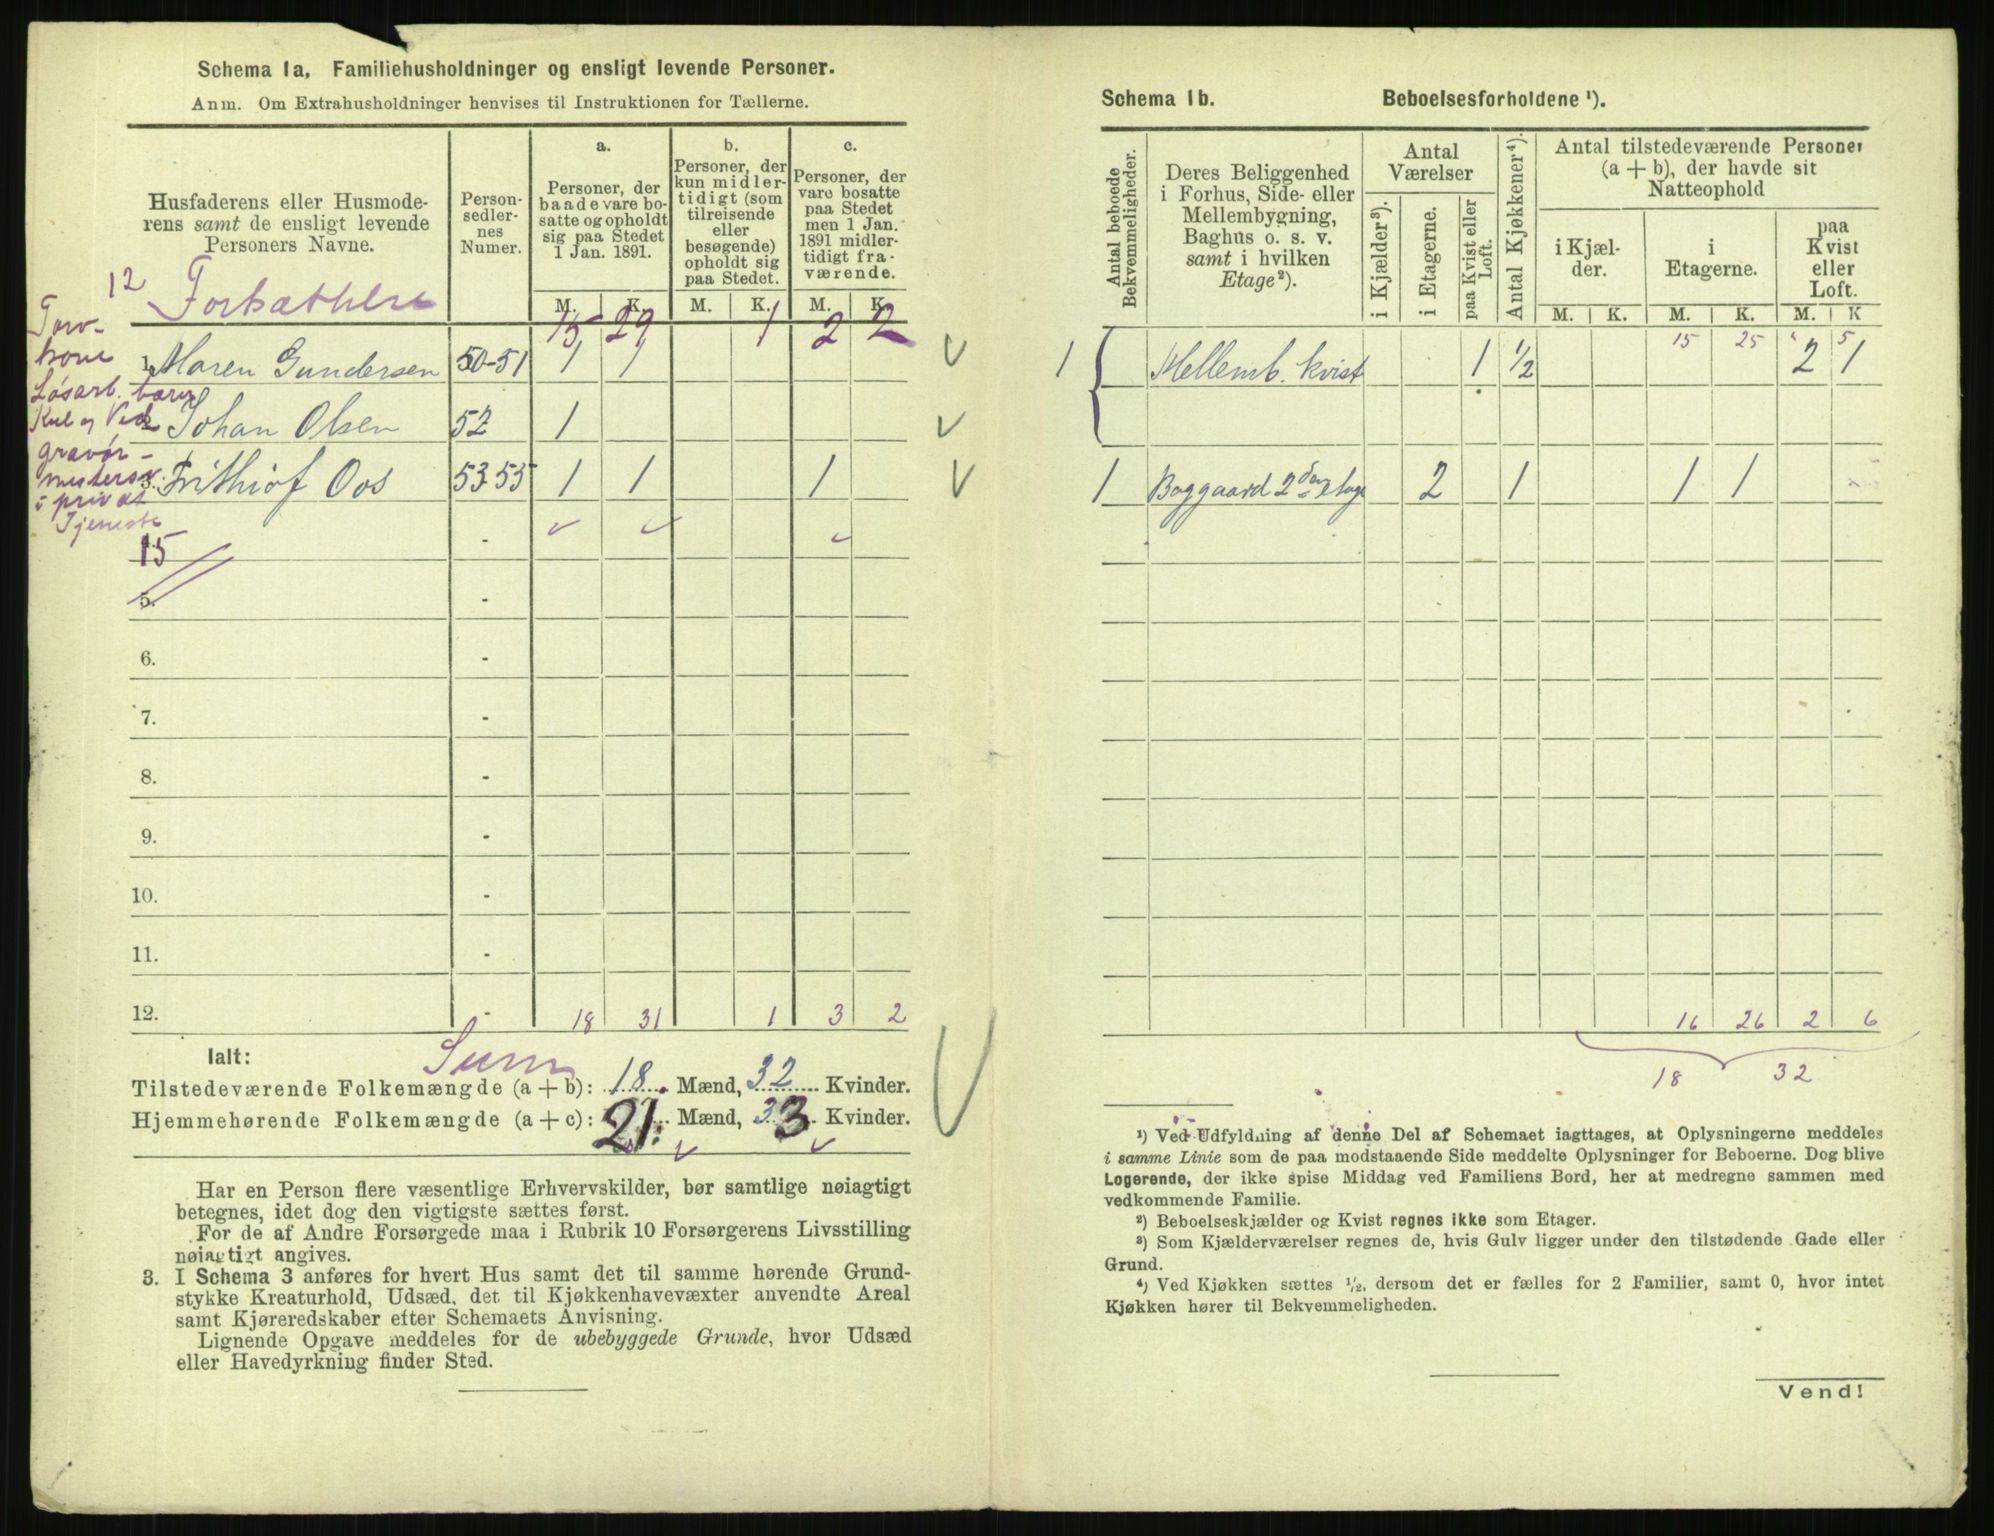 Schema 1a, Familiehusholdninger og ensligt levende Personer.
Anm. Om Extrahusholdninger henvises til Instruktionen for Tællerne.
Husfaderens eller Husmoderens samt de ensligt levende Personers Navne.
Person-sedler-nes Numer.
a. Personer, der baade vare bosatte og opholdt sig paa Stedet 1 Jan. 1891.
b. Personer, der kun midlertidigt (som tilreisende eller besøgende) opholdt sig paa Stedet.
c. Personer, der vare bosatte paa Stedet men 1 Jan. 1891 midlertidigt fraværende.
M. K. M. K. M. K.
12 15 29 1 2 2
1. Maren Gundersen 50-51 1 1
2. Johan Olsen 52 1
3. Frithiof Oos 53-55 1 1 1
Løsarb. bærer
Kul og Ved
gravør-
i privat
Tjeneste
15
5. -
6. -
7. -
8. -
9. -
10. -
11. -
12. - 18 31 1 3 2
Ialt: Sum
Tilstedeværende Folkemængde (a + b): 18 Mænd, 32 Kvinder.
Hjemmehørende Folkemængde (a + c): 21 Mænd, 33 Kvinder.
Har en Person flere væsentlige Erhvervskilder, bør samtlige nøiagtigt
betegnes, idet dog den vigtigste sættes først.
For de af Andre Forsørgede maa i Rubrik 10 Forsørgerens Livsstilling
nøiagtigt angives.
3. I Schema 3 anføres for hvert Hus samt det til samme hørende Grund-
stykke Kreaturhold, Udsæd, det til Kjøkkenhavevæxter anvendte Areal
samt Kjøreredskaber efter Schemaets Anvisning.
Lignende Opgave meddeles for de ubebyggede Grunde, hvor Udsæd
eller Havedyrkning finder Sted.
Schema 1b. Beboelsesforholdene ¹).
Antal beboede Bekvemmeligheder.
Deres Beliggenhed i Forhus, Side- eller Mellembygning, Baghus o. s. v. samt i hvilken Etage²).
Antal Værelser
i Kjælder³).
i Etagerne.
paa Kvist eller Loft.
Antal Kjøkkener⁴).
Antal tilstedeværende Personer (a + b), der havde sit Natteophold
i Kjælder.
i Etagerne.
paa Kvist eller Loft.
M. K. M. K. M. K
15 25 5
1 Mellemb. kvist 1 1/2 2 1
1 Baggaard 2den etage 2 1 1 1
16 26 2 6
18 32
¹) Ved Udfyldning af denne Del af Schemaet iagttages, at Oplysningerne meddeles
i samme Linie som de paa modstaaende Side meddelte Oplysninger for Beboerne. Dog blive
Logerende, der ikke spise Middag ved Familiens Bord, her at medregne sammen med
vedkommende Familie.
²) Beboelseskjælder og Kvist regnes ikke som Etager.
³) Som Kjælderværelser regnes de, hvis Gulv ligger under den tilstødende Gade eller
Grund.
⁴) Ved Kjøkken sættes ½, dersom det er fælles for 2 Familier, samt 0, hvor intet
Kjøkken hører til Bekvemmeligheden.
Vend!